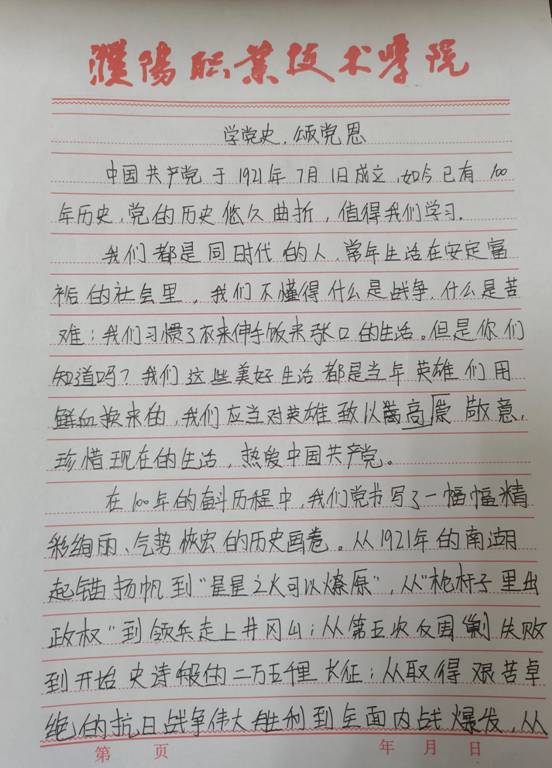 濮阳职业技术学院
学党史，颂党恩
中国共产党于1921年7月1日成立，如今已有100
年历史，党的历史悠久曲折，值得我们学习.
我们都是同时代的人，常年生活在安定富
裕的社会里。我们不懂得什么是战争，什么是苦
难；我们习惯了衣来伸手饭来张口的生活。但是你们
知道吗？我们这些美好生活都是当年英雄们用
鲜血换来的，我们应当对英雄致以崇高敬意，
珍惜现在的生活，热爱中国共产党。
在100年的奋斗历程中，我们党书写了一幅幅精
彩绚丽、气势恢宏的历史画卷。从1921年的南湖
起锚扬帆到“星星之火可以燎原”，从“枪杆子里出
政权”到领兵走上井冈山；从第五次反围剿失败
到开始史诗般的二万五千里长征；从取得艰苦卓
绝的抗日战争伟大胜利到全面内战爆发，从
第 页 年 月 日